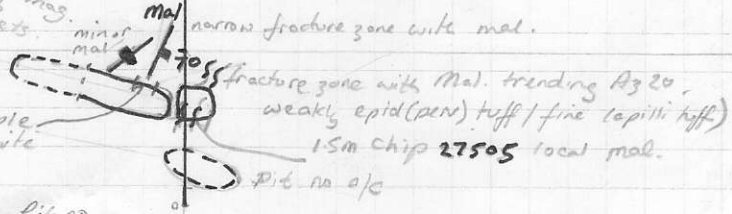 mag.
Mal
narrow fracture zone with mal.
minor
mal
70
55 fracture zone with Mal. trending Az 20.
weakly epid (perv) tuff / fine lapilli tuff)
1.5m Chip 27505 local mal.
Pit no o/c